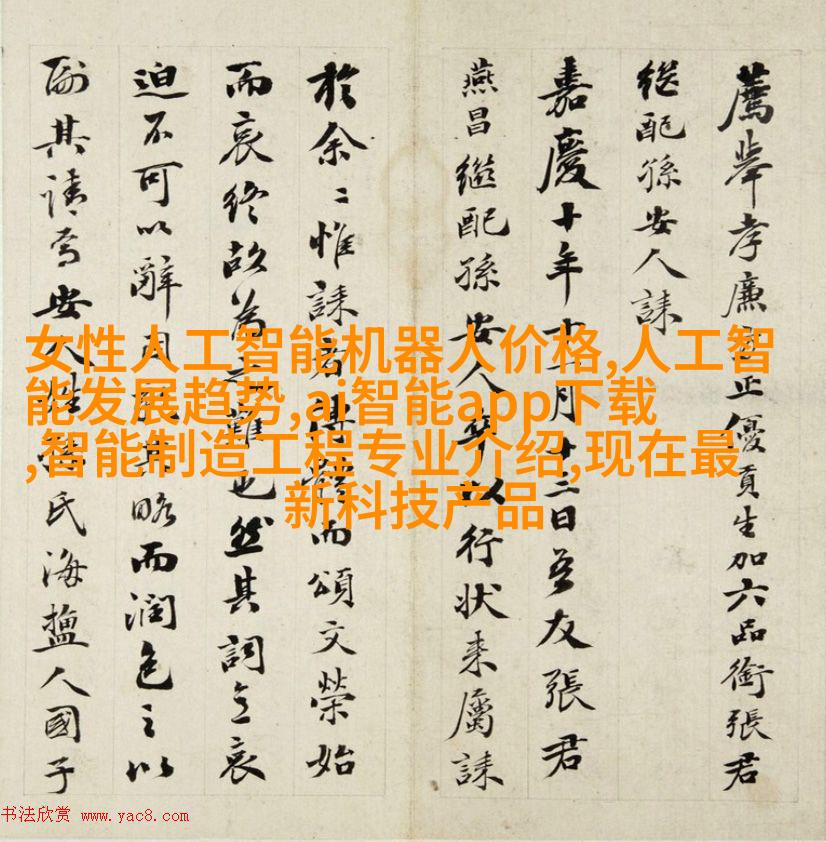 薦舉孝廉方正優貢生加六品銜張君
继配孫安人誄
嘉慶十年十月十三日吾友張君
燕昌繼配孫安人卒以行狀来屬誄
於余〻惟誄者傳體而頌文榮始
而哀終故為之難也然其詞哀
迫不可以辭用其略而潤色之以
副其請焉安人姓孫氏海鹽人國子
女性人工智能机器人价格,人工智
能发展趋势,ai智能app下载
,智能制造工程专业介绍,现在最
新科技产品
书法欣赏 www.yac8.com